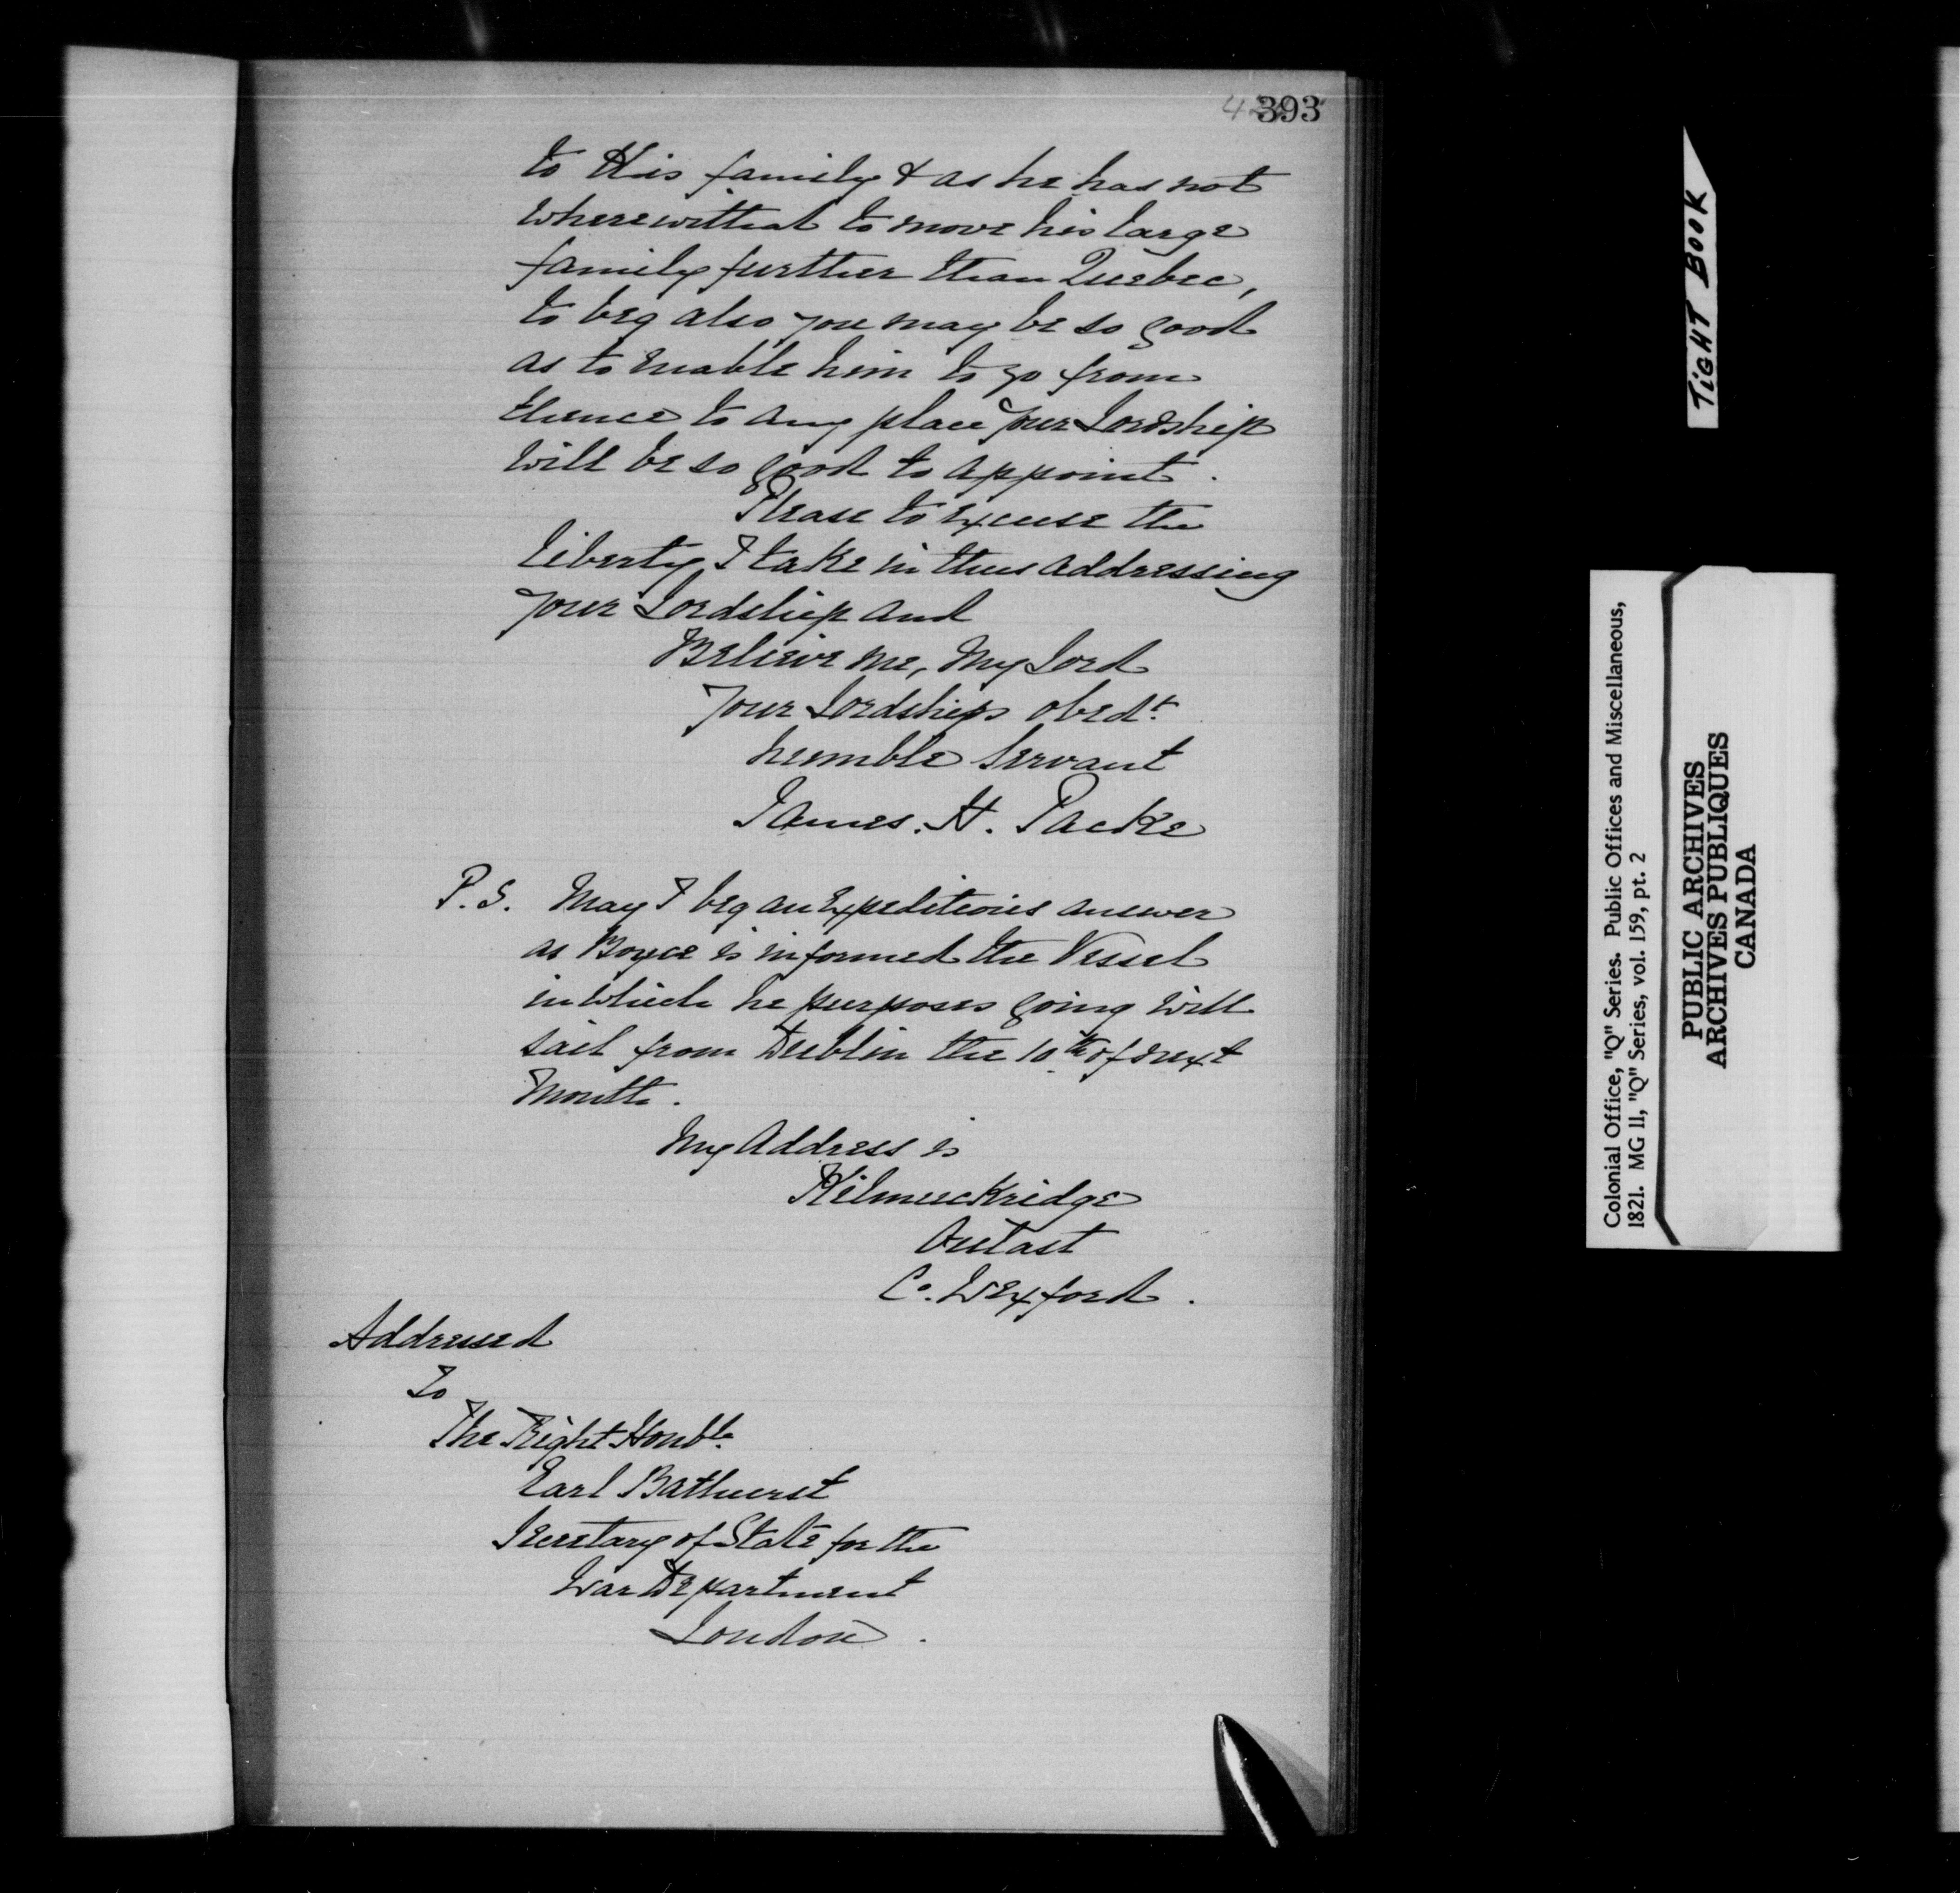 393
to this family & as he has not
wherewithal to move his large
family further than Quebec,
to beg also you may be so good
as to enable him to go from
thence to any place your Lordship
will be so good to appoint.
Please to excuse the
liberty I take in thus addressing
your Lordship and
Believe me, My Lord
Your Lordships obedt.
humble Servant
James. H. Packe
P.S. May I beg an Expeditious answer
as Boyce is informed the Vessel
in which he purposes going will
sail from Dublin the 10th of next
Month.
My Address is
Kilmuckridge
Oulast
Co. Wexford.
Addressed
To
The Right Honble.
Earl Bathurst
Secretary of State for the
War Department
London.
TIGHT BOOK
Colonial Office, "Q" Series. Public Offices and Miscellaneous,
1821. MG 11, "Q" Series, vol. 159, pt. 2
PUBLIC ARCHIVES
ARCHIVES PUBLIQUES
CANADA